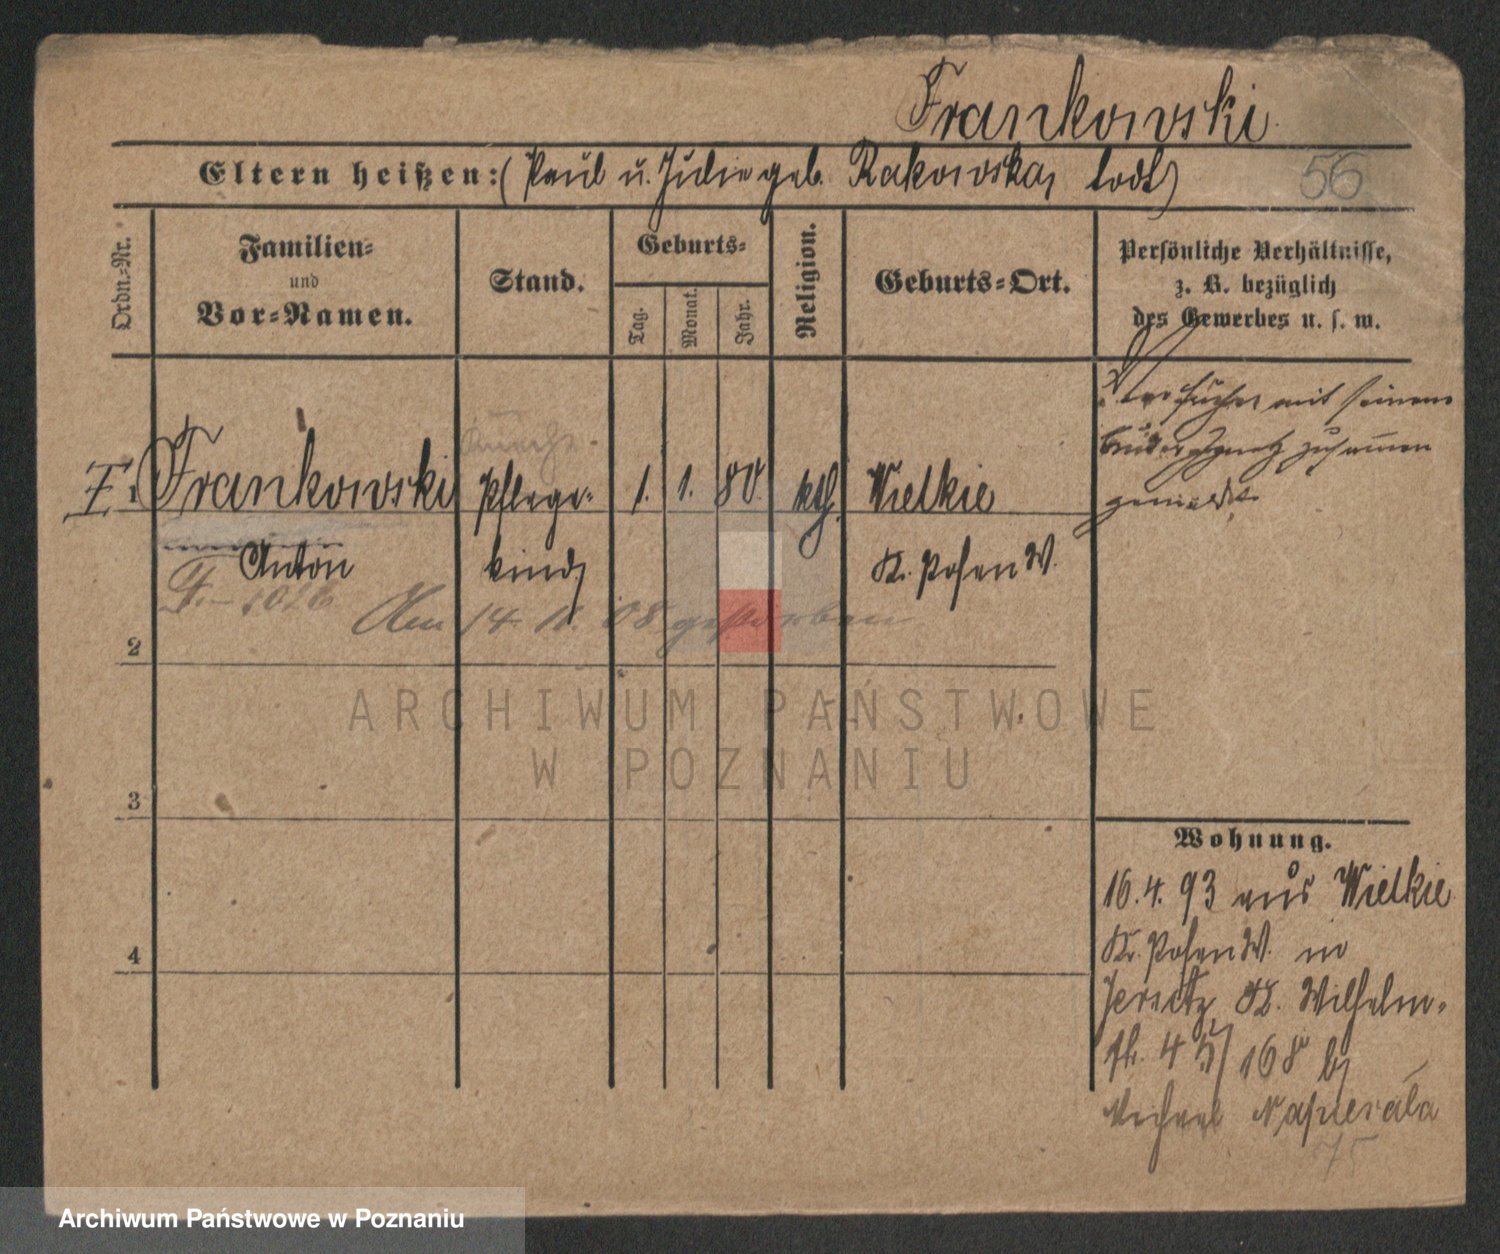 Frankowski
Eltern heißen: (Paul u. Julie geb. Rakowska, todt)
56
Ordn.-Nr.
Familien-
und
Vor-Namen.
Stand.
Geburts-
Tag.
Monat.
Jahr.
Religion.
Geburts-Ort.
Persönliche Verhältnisse,
z. B. bezüglich
des Gewerbes u. s. w.
früher mit seinem
Bruder Ignatz zusammen
gemeldet
Knecht
I. Frankowski Pflege- 1. 1. 80. kth. Wielkie
Anton kind, Kr. Posen W.
Am 14. 11. 08 gestorben
2
3
4
ARCHIWUM PAŃSTWOWE
W POZNANIU
Wohnung.
16.4.93 aus Wielkie
Kr. Posen W. in
Jersitz, Kl. Wilhelm-
str. 4 168 b/
Michael Napierala
75
Archiwum Państwowe w Poznaniu